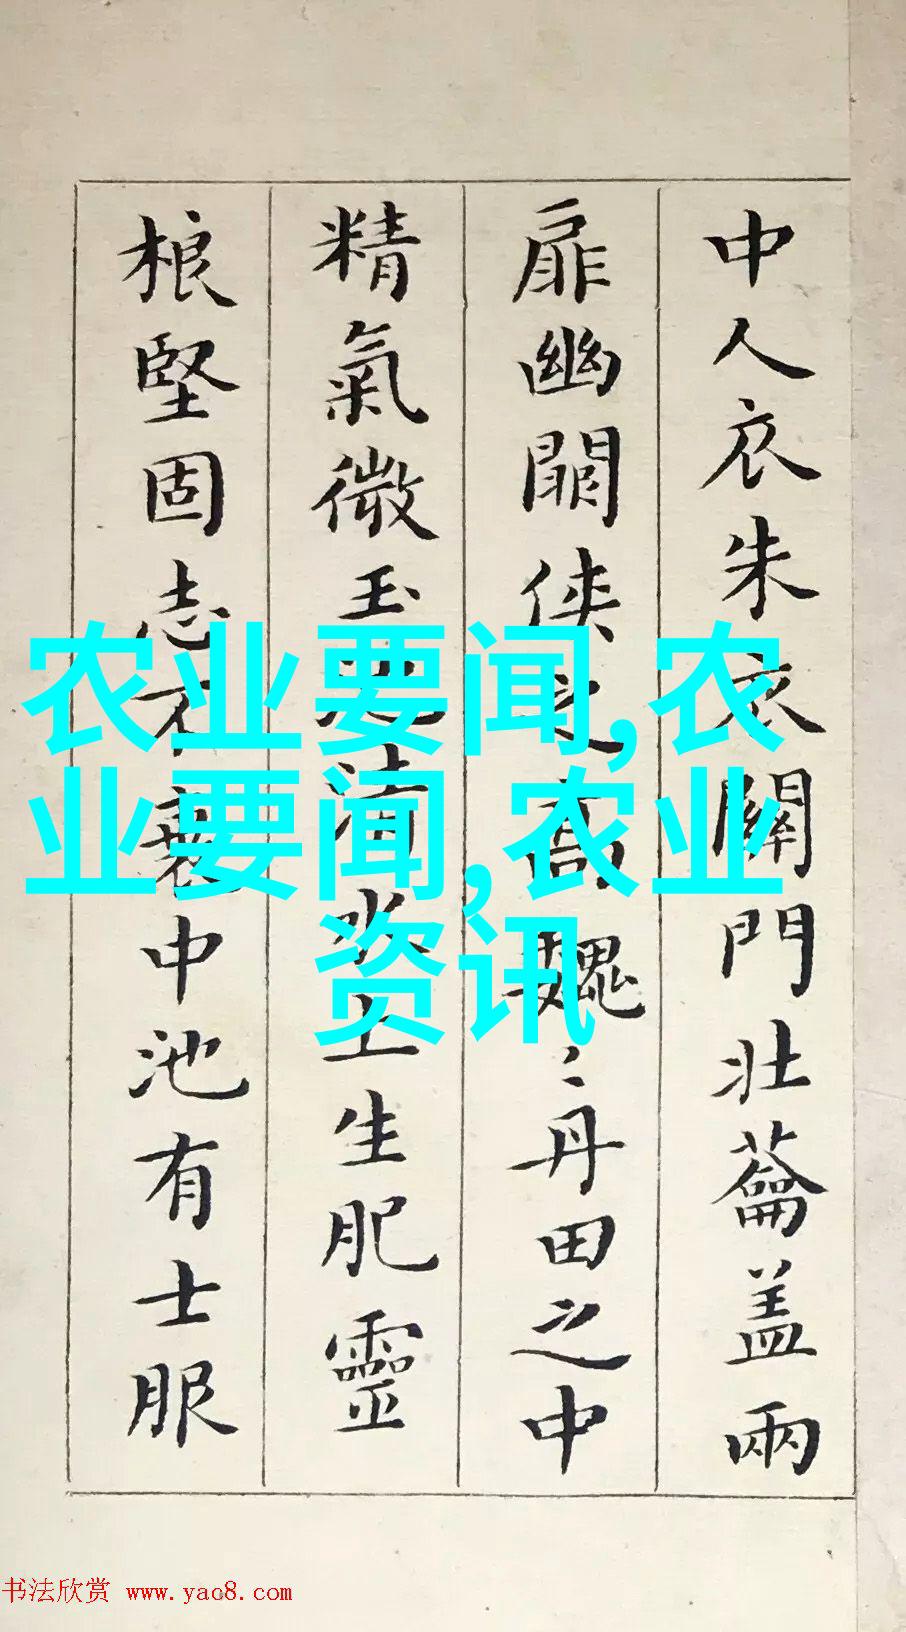 中人衣朱衣關門壯蘥盖兩
扉幽闗俠之高魏〻丹田之中
精氣微玉池清水上生肥靈
根堅固志不衰中池有士服
农业要闻,农
业要闻,农业
资讯
书法欣赏 www.yac8.com